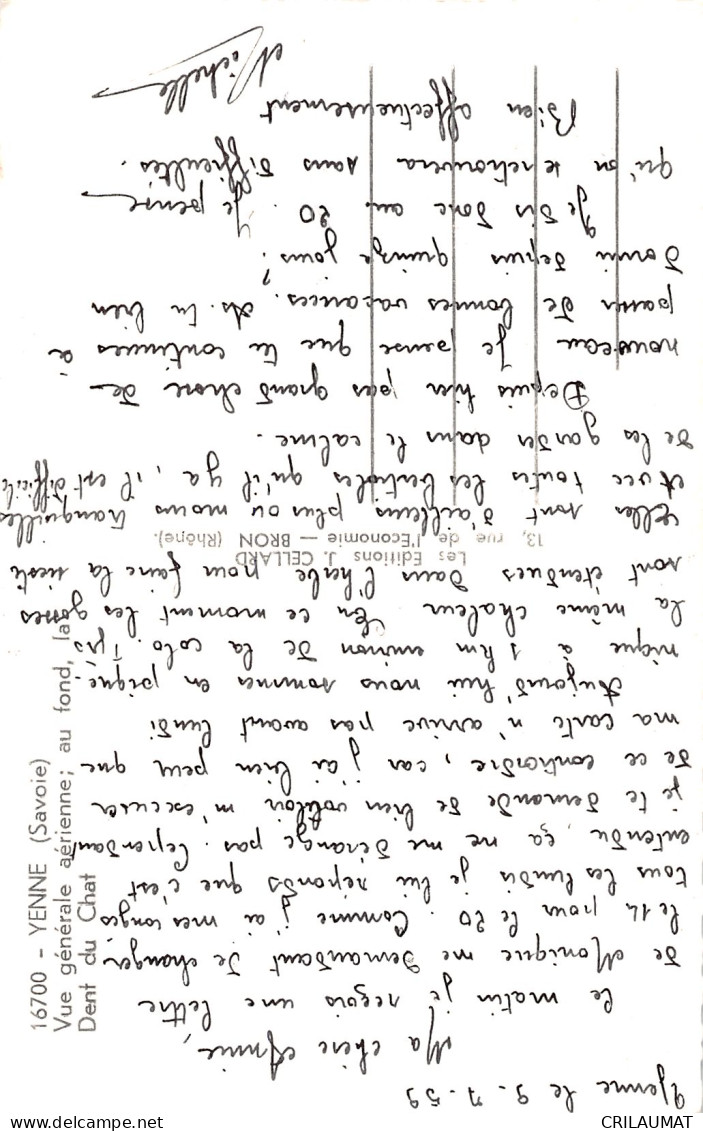 Yenne le 9.7.59
Ma chère Annie,
Ce matin je reçois une lettre
de Monique me demandant de changer
le 14 pour le 20. Comme j'ai mes congés
tous les lundis je lui réponds que c'est
entendu, ça ne me dérange pas. Cependant
je te demande de bien vouloir m'excuser
de ce contordre, car j'ai bien peur que
ma carte n'arrive pas avant lundi
Aujourd'hui nous sommes en pique-
nique à 1 km environ de la colo. Tjrs
la même chaleur. En ce moment les gosses
sont étendues dans l'herbe pour faire la sieste
Elles sont d'ailleurs plus ou moins tranquilles
et avec toutes les bestioles qu'il y a, il est difficile
de les garder dans le calme.
Depuis hier pas grand chose de
nouveau. Je pense que tu continues à
passer de bonnes vacances. As-tu bien
dormi depuis quinze jours?
Je dis donc au 20. Je pense
qu'on se retrouvera sans difficultés.
Bien affectueusement
Michelle
16700 - YENNE (Savoie)
Vue générale aérienne; au fond, la
Dent du Chat
Les Editions J. CELLARD
13, rue de l'Economie — BRON (Rhône).
CRILAUMAT